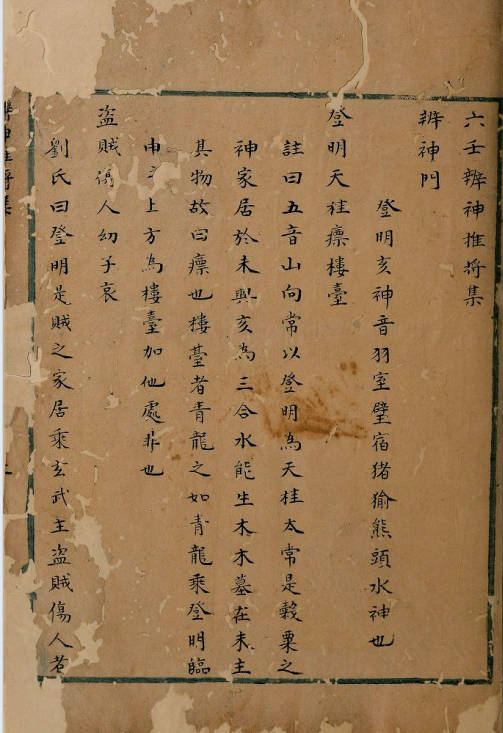 六壬辨神推将集
辨神門
登明亥神音羽室壁宿猪㺄熊頭水神也
登明天柱廪樓臺
註曰五音山向常以登明為天柱太常是穀粟之
神家居於未與亥為三合水能生木木墓在未主
其物故曰廪也樓臺者青龍之如青龍乘登明臨
申主上方為樓臺加他處非也
盗賊傷人幼子哀
劉氏曰登明是賊之家居乘玄武主盗賊傷人若